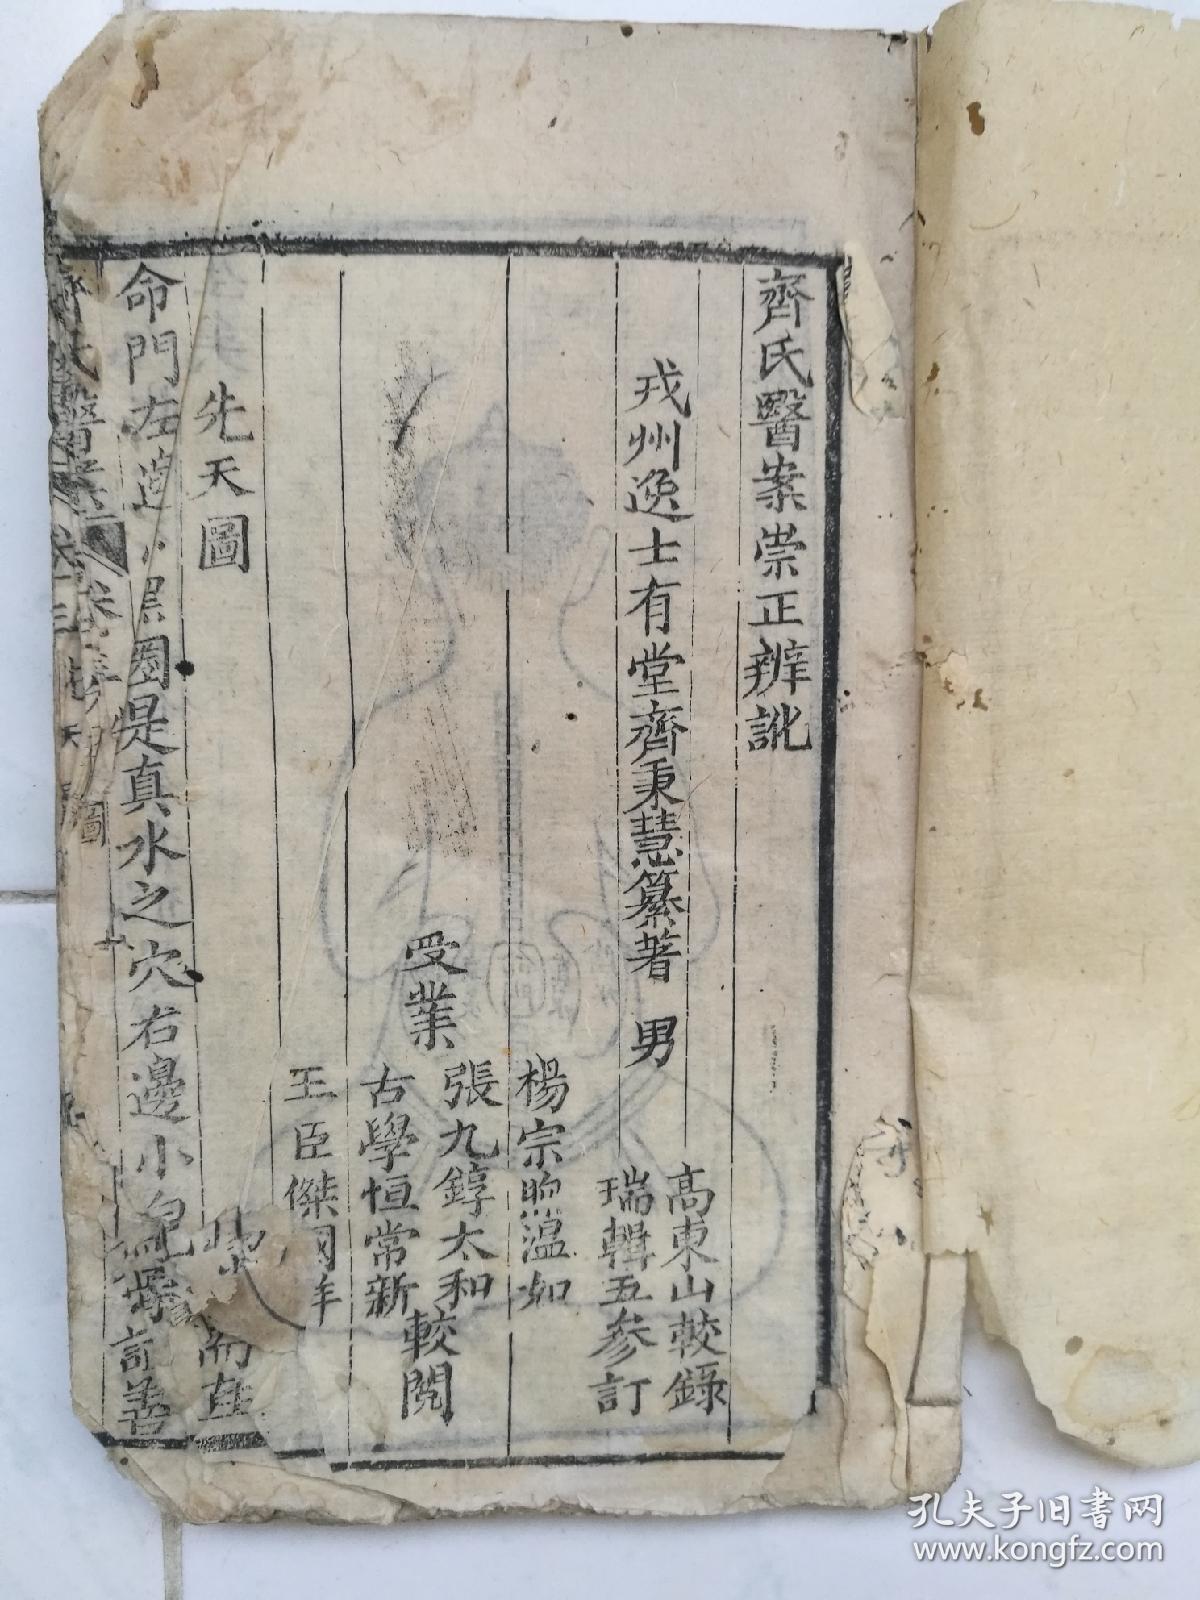 齊氏醫案崇正辨訛
戎州逸士有堂齊秉慧纂著 男
高東山較錄
瑞輯五參訂
受業
楊宗煦溫如
張九錞太和
古學恒常新
王臣傑國
較閱
先天圖
命門左邊小黑圈是真水之穴右邊小白
齊氏醫案
孔夫子旧书网
www.kongfz.com